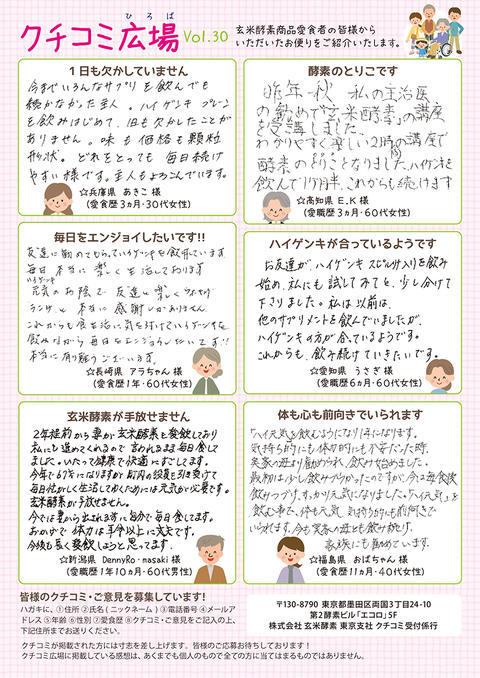 ひろば
クチコミ広場 Vol.30
玄米酵素商品愛食者の皆様から
いただいたお便りをご紹介いたします。
1日も欠かしていません
今までいろんなサプリを飲んでも
続かなかった主人。ハイゲンキ
を飲みはじめて、1日も欠かしたことが
ありません。味も価格も顆粒
形状。どれをとっても毎日続け
やすい様です。主人もよろこんでいます。
☆兵庫県 あきこ 様
(愛食歴3ヵ月・30代女性)
酵素のとりこです
昨年秋 私の主治医
の勧めで「玄米酵素」の講座
を受講しました。
わかりやすく楽しい2時間の講座で
酵素のとりことなりました。ハイゲンキを
飲んで1ヶ月半、これからも続けます
☆高知県 E.K 様
(愛職歴3ヵ月・60代女性)
毎日をエンジョイしたいです!!
友達に勧めてもらってハイゲンキを飲んでいます
毎日本当に楽しく生活しております
ハイゲンキ
元気のお陰で友達と楽しく
ランチと本当に感謝しかありません
これからも食生活に気を付けてハイゲンキを
飲みながら毎日をエンジョイしたいです!!
本当に有り難うございます。
☆長崎県 アラちゃん 様
(愛食歴1年・60代女性)
ハイゲンキが合っているようです
お友達が、ハイゲンキ スピルリナ入りを飲み
始め、私にも試してみてと、少し分けて
下さりました。私は以前は、
他のサプリメントを飲んでいましたが、
ハイゲンキの方が合っているようです。
これからも、飲み続けていきたいです。
☆愛知県 うさぎ 様
(愛職歴6ヵ月・60代女性)
玄米酵素が手放せません
2年程前から妻が玄米酵素を愛飲しており
私にと進めてくれるので言われるまま毎日食して
ました。いたって健康で快適にすごしてます。
今年で67才になりますが町内の役員を引き受けて
毎日忙がしく生活しておくためには元気が必要です。
玄米酵素が手放せません。
今では妻から出される前に自分で毎日食してます。
おかげで体力は年令以上に大丈夫です。
今後も長く愛飲しようと思ってます。
☆新潟県 DennyRo・nasaki 様
(愛職歴1年10ヵ月・60代男性)
体も心も前向きでいられます
「ハイ元気」を飲むようになり1年になります。
気持ち的にも体力的にも不安だった時、
実家の母より勧められ、飲み始めました。
最初は少し飲みづらかったのですが、今は毎食後
飲みつづけ、すっかり元気になりました。「ハイ元気」を
飲む事で、体も元気、気持ちも前向きで
いられます。今も実家の母とも飲み続け、
家族にも勧めています。
☆福島県 おばちゃん 様
(愛食歴11ヵ月・40代女性)
皆様のクチコミ・ご意見を募集しています!
ハガキに、①住所 ②氏名(ニックネーム) ③電話番号 ④メールア
ドレス ⑤年齢 ⑥性別 ⑦愛食歴 ⑧クチコミ・ご意見をご記入の上、
下記住所までお送りください。
〒130-8790 東京都墨田区両国3丁目24-10
第2酵素ビル「エコロ」5F
株式会社 玄米酵素 東京支社 クチコミ受付係行
クチコミが掲載された方には寸志を差し上げます。皆様のご応募お待ちしております!
クチコミ広場に掲載している感想は、あくまでも個人のもので全ての方に当てはまるものではありません。